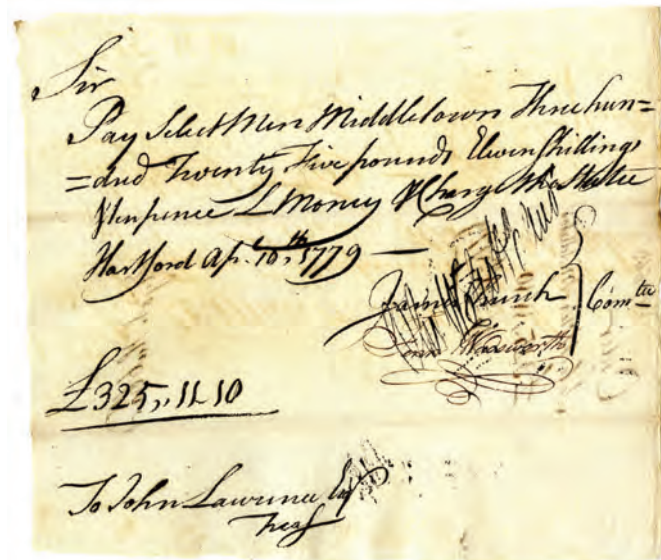 Sir
Pay Select Men Middletown Three hun=
=dred Twenty Five pounds Eleven Shillings
Tenpence L Money & Charge the State
Hartford Apl. 10th, 1779 —
James Church
Wadsworth
Comtee
£325,, 11 10
To John Lawrence Esqr
Treasr